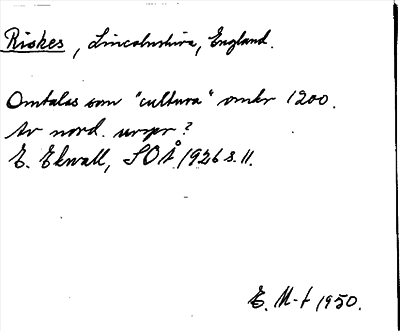 Riskes, Lincolnshire, England.
Omtalas som "cultura" omkr 1200.
Av nord. urspr?
E. Ekwall, SOÅ 1926 s. 11.
E. M-t 1950.